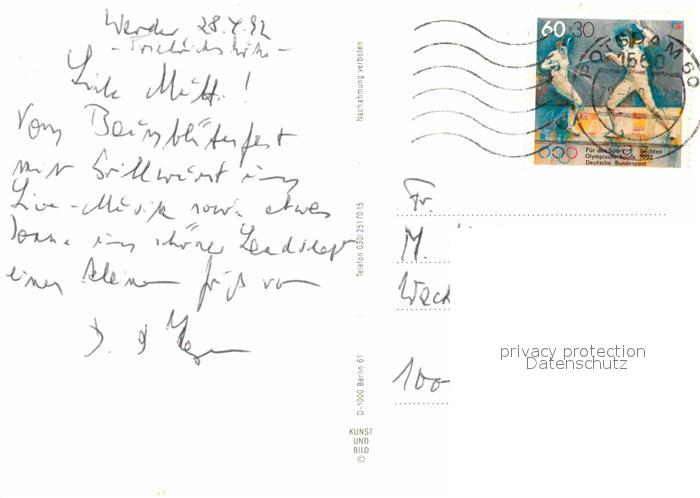 Werder 28.4.92
- Friedrichshöhe -
Liebe Mutti!
Vom Baumblütenfest
mit Grillwurst und
Live-Musik sowie etwas
Sonne und schöner Landschaft
einen kleinen Gruß von
D.
Nachahmung verboten
Telefon 030/2517015
D-1000 Berlin 61
KUNST
UND
BILD
©
60+30
POTSDAM 60
1560
Für den Sport Fechten
Olympische Spiele 1992
Deutsche Bundespost
Fr.
M.
100
privacy protection
Datenschutz